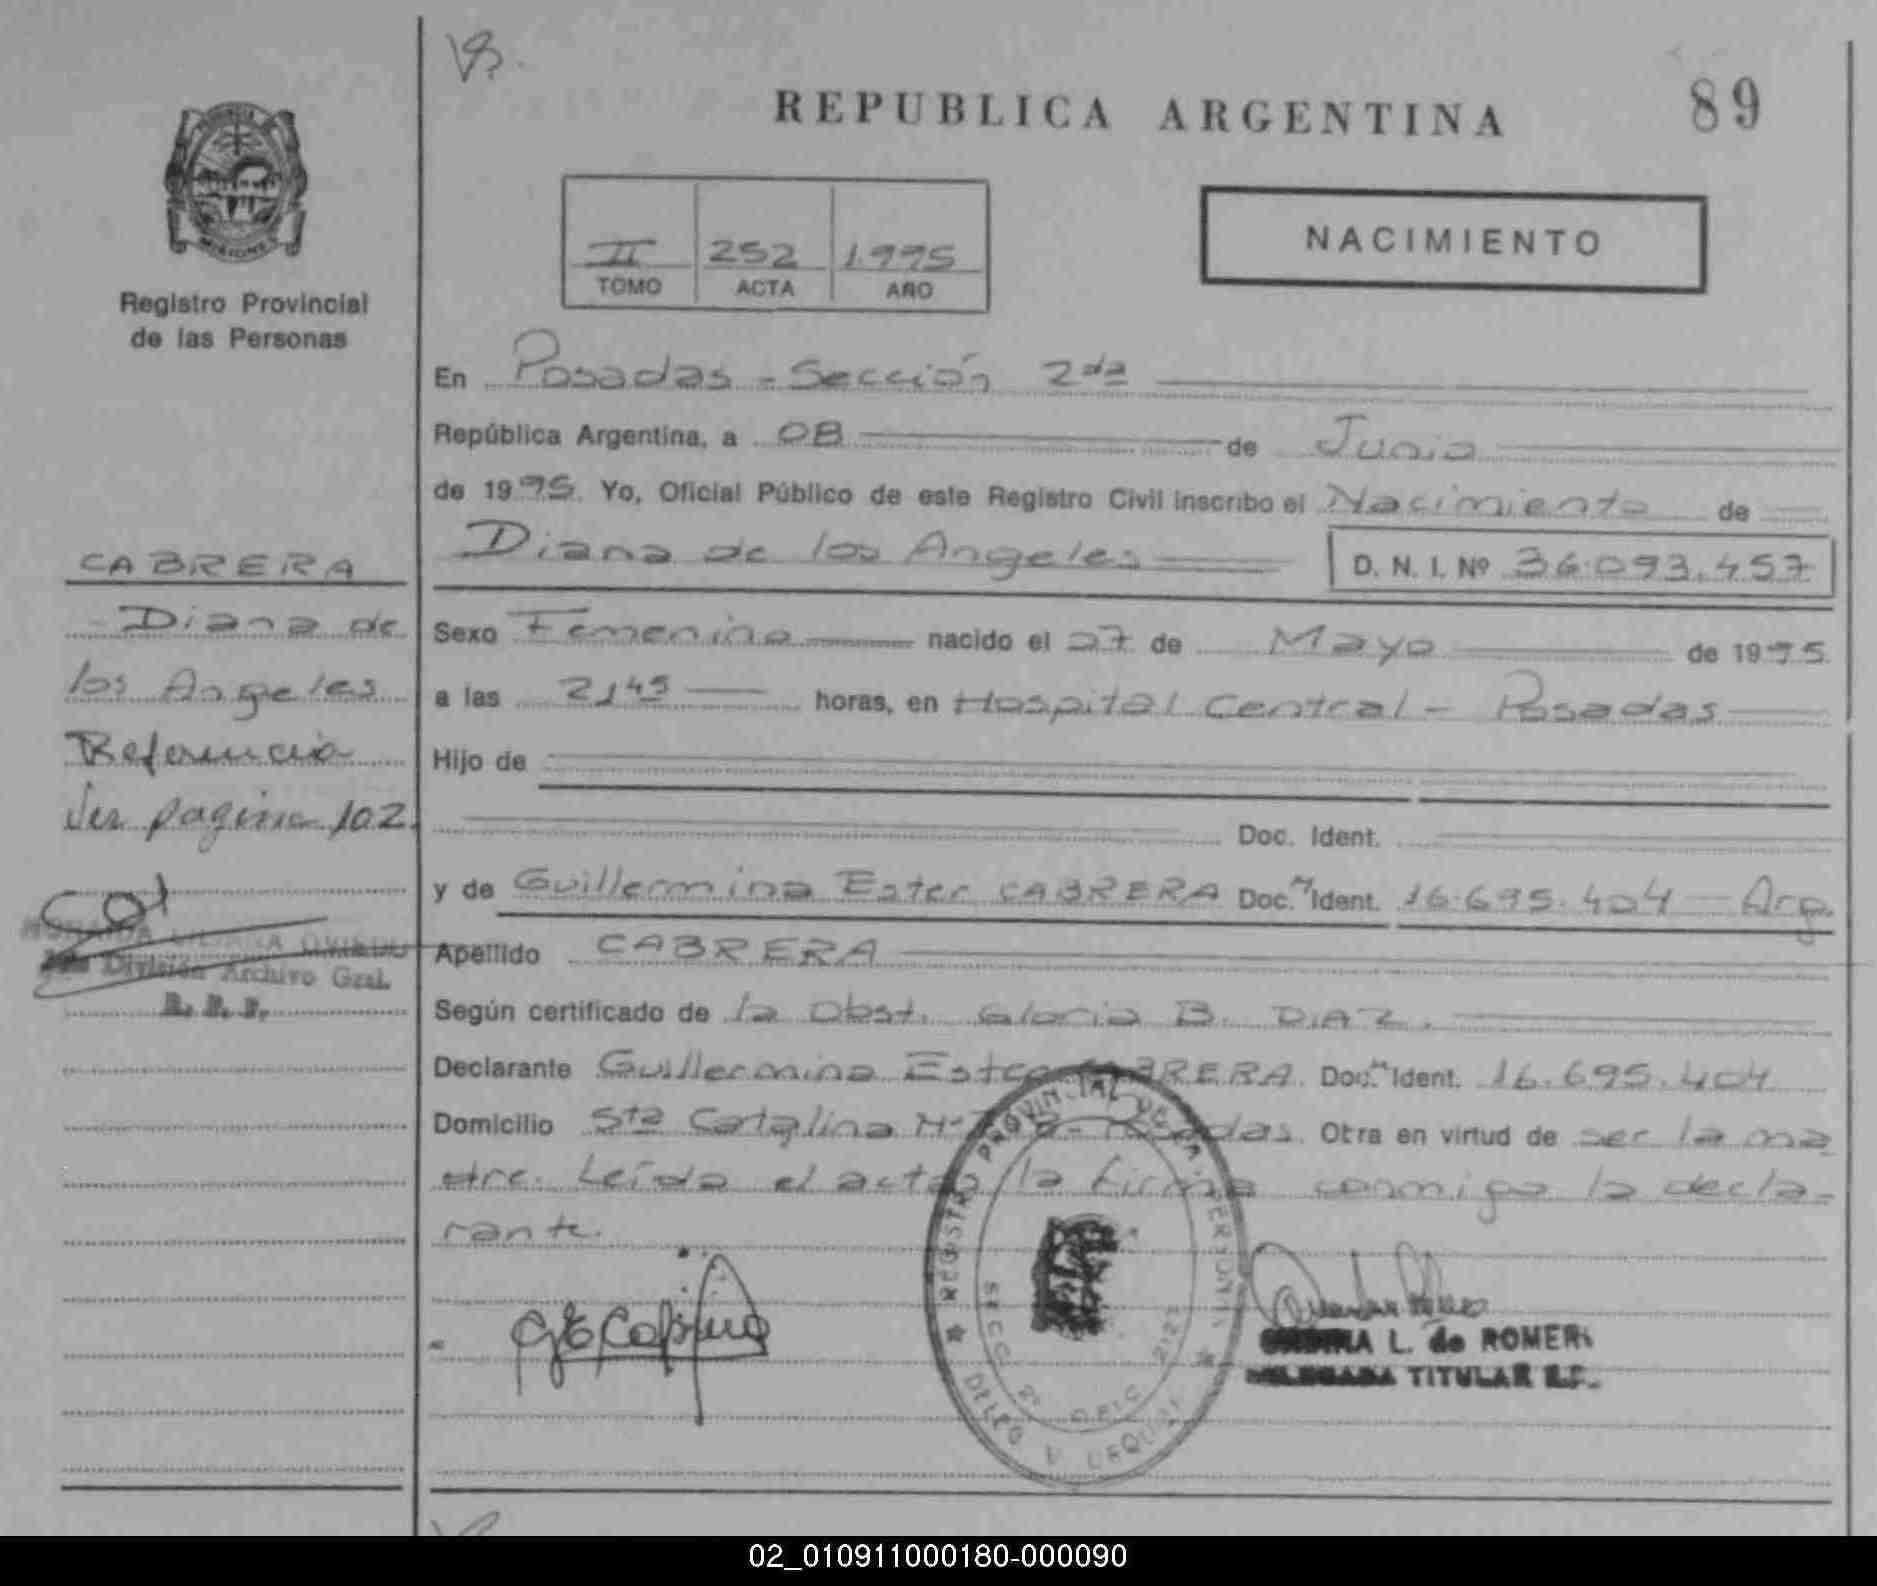 REPUBLICA ARGENTINA
89
NACIMIENTO
II 252 1995
TOMO ACTA AÑO
Registro Provincial
de las Personas
CABRERA
Diana de
los Angeles
Referencia
Ver pagina 102
LILIANA OVIEDO
División Archivo Gral.
R. P. P.
En Posadas - Sección 2da
República Argentina, a 08 de Junio
de 1995 Yo, Oficial Público de este Registro Civil inscribo el Nacimiento de
Diana de los Angeles D. N. I. Nº 36.093.457
Sexo Femenino nacido el 27 de Mayo de 1995
a las 21 45 horas, en Hospital Central - Posadas
Hijo de
Doc. Ident.
y de Guillermina Ester CABRERA Doc. Ident. 16.695.404 - Arg.
Apellido CABRERA
Según certificado de la Obst. Gloria B. DIAZ.
Declarante Guillermina Ester CABRERA. Doc. Ident. 16.695.404
Domicilio Sta Catalina Posadas. Obra en virtud de ser la ma
dre. Leída el acta, la firma conmigo la decla-
rante.
REGISTRO PROVINCIAL DE LAS PERSONAS
SECC 2º
L. de ROMERO
DELEGADA TITULAR R.P.
02_010911000180-000090